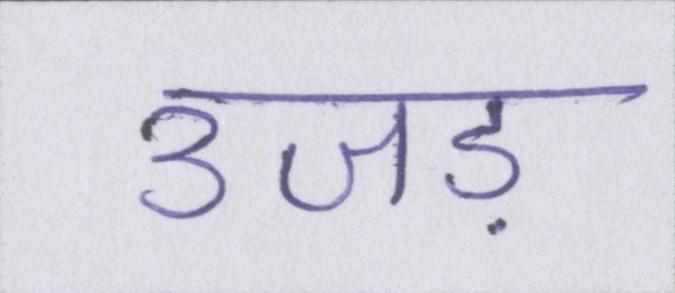 उजड़